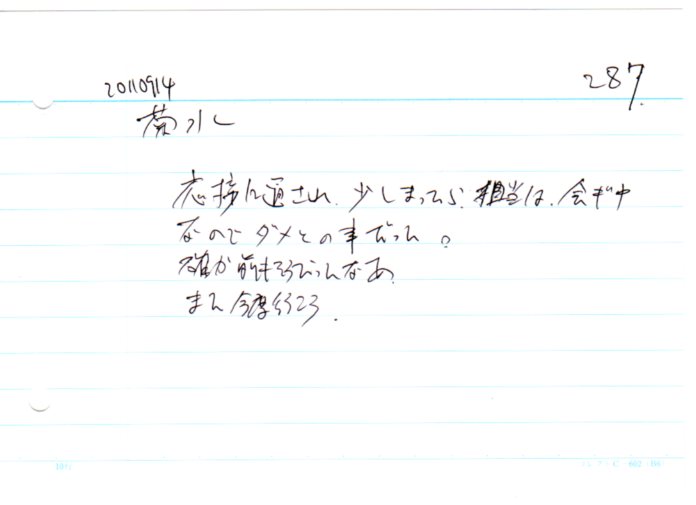 20110914
287.
応接に通され、少しまったら、担当は、会ギ中
なのでダメとの事だった。
確か前もそうだったなあ、
また今度行こう.